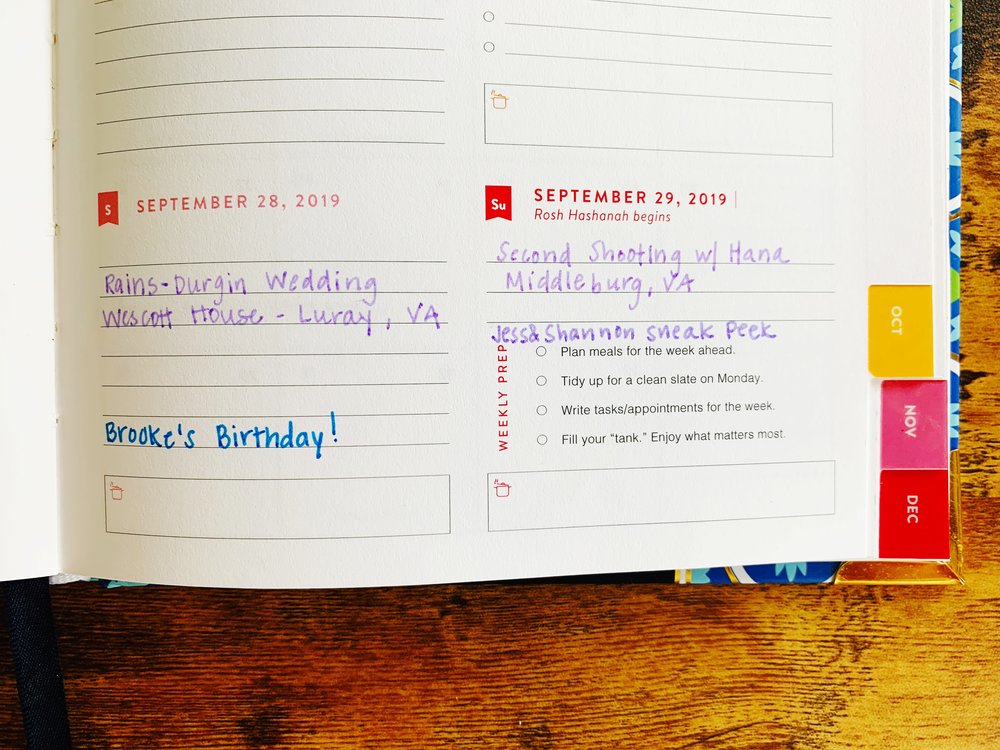 S SEPTEMBER 28, 2019
Rains-Durgin Wedding
Wescott House - Luray, VA
Brooke's Birthday!
Su SEPTEMBER 29, 2019 |
Rosh Hashanah begins
Second Shooting w/ Hana
Middleburg, VA
Jess&Shannon sneak peek
WEEKLY PREP
Plan meals for the week ahead.
Tidy up for a clean slate on Monday.
Write tasks/appointments for the week.
Fill your “tank.” Enjoy what matters most.
OCT
NOV
DEC